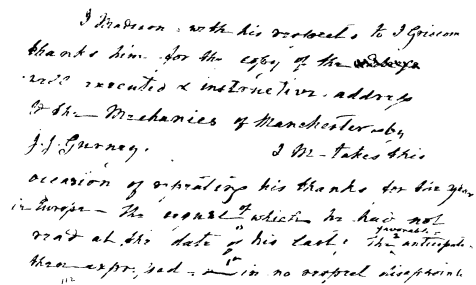 J Madison with his respects to J Griscom
thanks him for the copy of the
well executed & instructive address
to the Mechanics of Manchester by
J. J. Gurney. J M takes this
occasion of repeating his thanks for his year
in Europe the sequel of which he had not
read at the date of his last; The favorable anticipations
then expressed in no respect disappoint